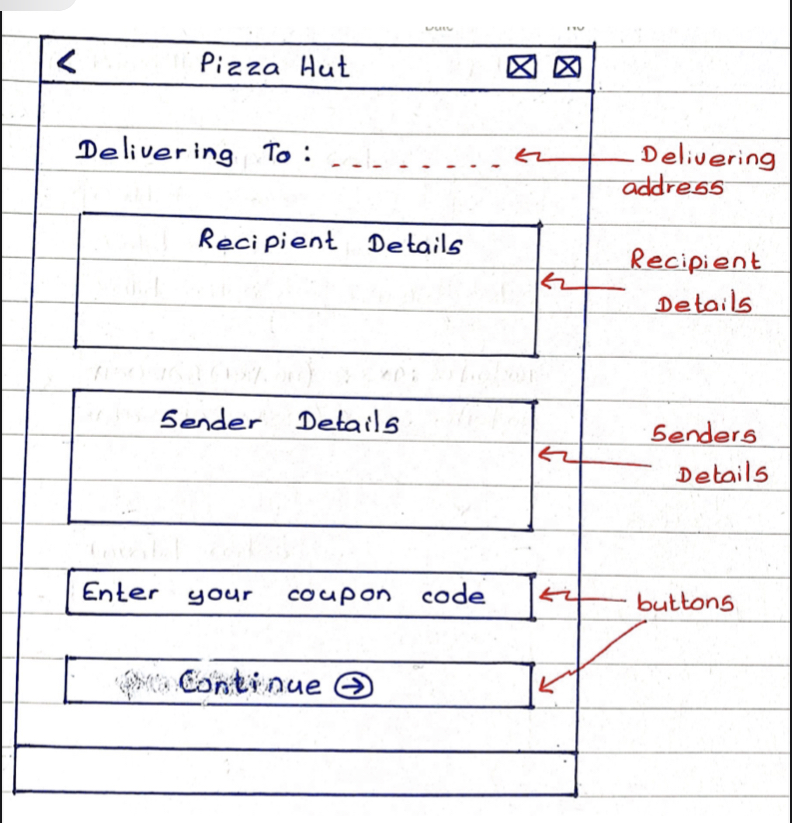 < Pizza Hut
Delivering To: - - - - - - - - -
Delivering
address
Recipient Details
Recipient
Details
Sender Details
Senders
Details
Enter your coupon code
buttons
Continue →